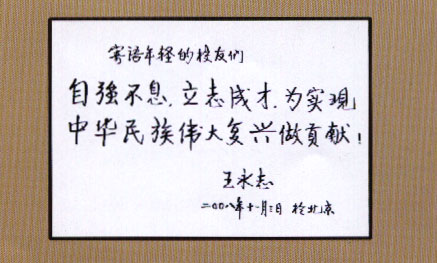 寄语年轻的校友们
自強不息,立志成才,为实现
中华民族伟大复兴做贡献!
王永志
二〇〇八年十一月三日 於北京